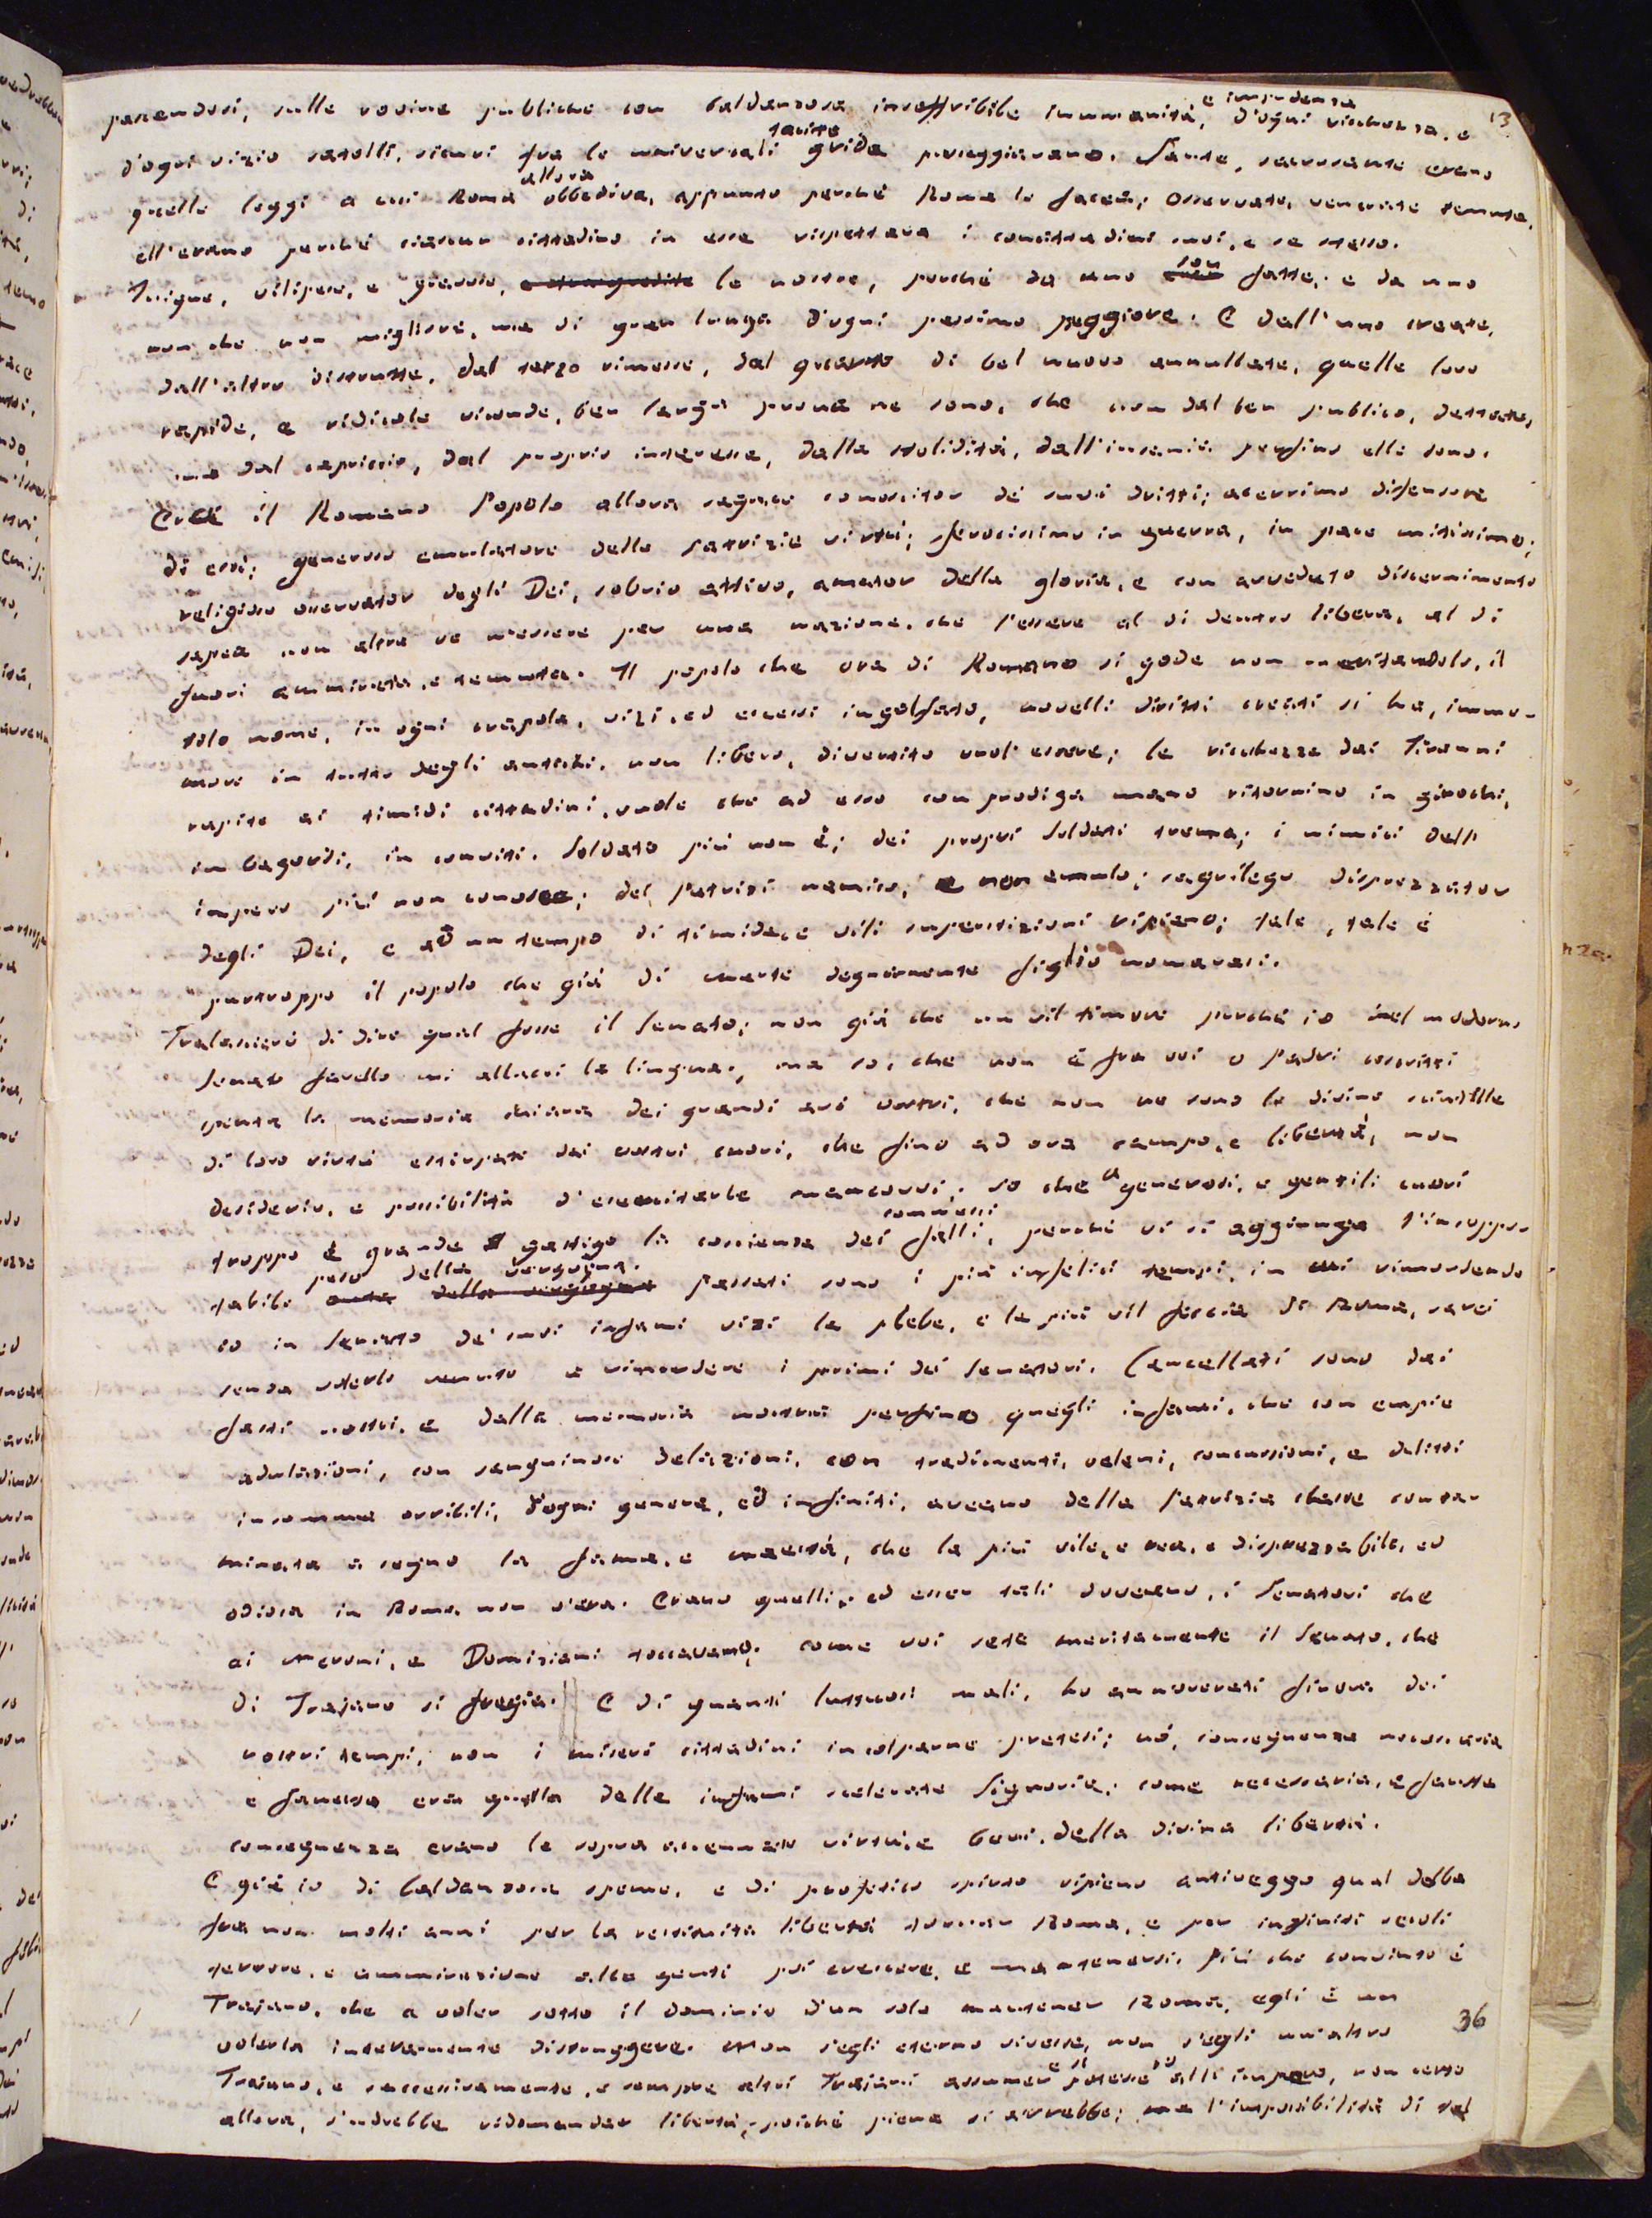 13
pascendosi, sulle rovine publiche con baldanzosa insoffribile inumanità, e impudenza d'ogni ricchezza, e
d'ogni vizio satolli, sicuri fra le universali tacite grida passeggiavano. Sante, sacrosante erano
quelle leggi a cui Roma allora obbediva, appunto perché Roma le facea; osservate, venerate temute,
ell'erano perché ciascun cittadino in esse rispettava i concittadini suoi, e se stesso.
Inique, vilipese, e le nostre, perché da uno son fatte; e da uno
non che non migliore, ma di gran lunga d'ogni pessimo peggiore. E dall'uno create,
dall'altro distrutte, dal terzo rimesse, dal quarto di bel nuovo annullate, quelle loro
rapide, e ridicole vicende, ben larga prova ne sono, che non dal ben publico, dettate,
ma dal capriccio, dal proprio interesse, dalla stolidità, dall'insania perfino elle sono.
Era il Romano Popolo allora sagace conoscitor dei suoi dritti; acerrimo difensore
di essi; generoso emulatore delle patrizie virtù; ferocissimo in guerra, in pace mitissimo;
religioso osservator degli Dei, sobrio attivo, amator della gloria, e con avveduto discernimento
sapea non altra ve n'essere per una nazione, che l'essere al di dentro libera, al di
fuori ammirata, e temuta. Il popolo che ora di Romano si gode non meritandolo, il
solo nome, in ogni crapula, vizi, ed eccessi ingolfato, novelli dritti creati si ha, immu-
nove in tutto degli antichi. non libero, divertito vuol essere; le ricchezze dai Tiranni
rapite ai timidi cittadini, vuole che ad esso con prodiga mano ritornino in giuochi,
in bagordi, in conviti. Soldato più non è; dei propri soldati trema; i nimici dell'
impero più non conosce; dei Patrizi nemico, e non emulo; sagrilego disprezzator
degli Dei, e ad un tempo di timida, e vili superstizioni ripieno; tale, tale è
purtroppo il popolo che già di Marte degnamente figlio nomavasi.
Tralascierò di dire qual fosse il Senato; non già che un vil timore perché io nel moderno
Senato favello mi allacci la lingua; ma so, che non è fra voi o Padri coscritti
spenta la memoria chiara dei grandi avi vostri, che non ne sono le divine scintille
di loro virtù estirpate dai vostri cuori, che fino ad ora campo, e libertà, non
desiderio, e possibilità d'esercitarle mancovvi; so che a generosi, e gentili cuori
troppo è grande gastigo la coscienza dei commessi falli, perché vi si aggiunga l'insoppor-
tabile peso della vergogna. Passati sono i più infelici tempi, in cui rimordendo
io in Senato de' suoi infami vizi la plebe, e la più vil feccia di Roma, sarei
senza volerlo venuto a rimordere i primi dei Senatori. Cancellati sono dai
fasti nostri, e dalla memoria nostra perfino quegli infami, che con empie
adulazioni, con sanguinose delazioni, con tradimenti, veleni, concussioni, e delitti
insomma orribili, d'ogni genere, ed infiniti, aveano della Patrizia classe conta-
minata a segno la fama, e maestà, che la più vile, e rea, e disprezzabile, ed
odiosa in Roma non v'era. Erano quelli, ed esser tali doveano, i Senatori che
ai Neroni, e Domiziani toccavano; come voi sete meritamente il Senato, che
di Trajano si fregia. E di quanti luttuosi mali, ho annoverati finora dei
nostri tempi, non i miseri cittadini incolparne pretesi; no, conseguenza necessaria
e funesta era quella delle infami scelerate Signorie; come necessaria, e fausta
conseguenza erano le sopra accennate virtù, e beni, della divina libertà.
E già io di baldanzosa speme, e di profetico spirto ripieno antiveggo qual debba
fra non molti anni per la restituita libertà tornar Roma, e per infiniti secoli
terrore, e ammirazione alle genti poi crescere, e mantenersi. Più che convinto è
Trajano, che a voler sotto il dominio d'un solo mantener Roma, egli è un
volerla interamente distruggere. Non s'egli eterno vivesse, non s'egli un'altro
Trajano, e successivamente, e sempre altri Trajani assumer si potesse all'impero, non certo
allora, s'udrebbe ridomandar libertà, poiché piena si avrebbe; ma l'impossibilità di tal
36